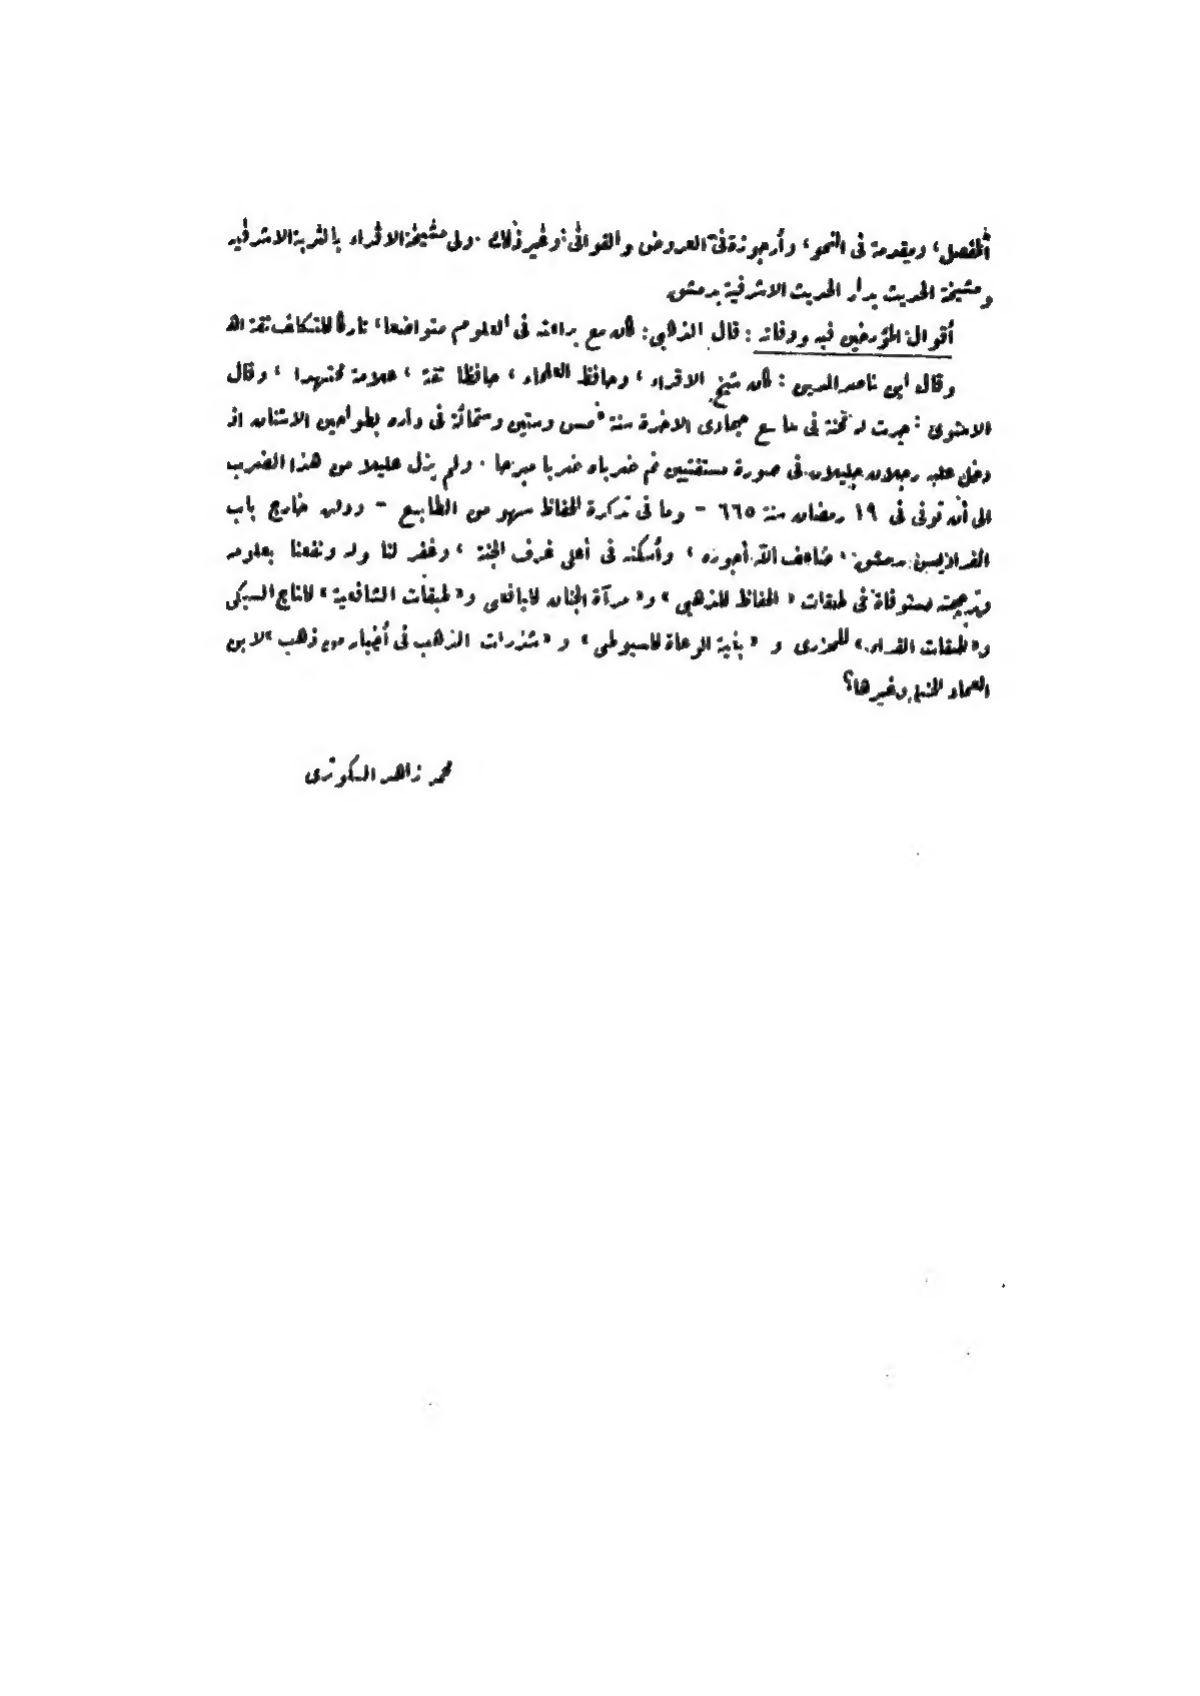 المفصل، ومقدمة فى النحو، وأرجوزة فى العروض والقوافى، وغير ذلك. ولى مشيخة الاقراء بالتربة الاشرفية
ومشيخة الحديث بدار الحديث الاشرفية بدمشق
أقوال المؤرخين فيه ووفاته : قال الذهبي : كان مع براعته فى العلوم متواضعا، تاركا للتكلف ثقة اه
وقال ابن ناصر الدين : كان شيخ الاقراء ، وحافظ العلماء ، حافظا ثقة ، علامة مجتهدا ، وقال
الاسنوى : جرت له محنة فى سابع جمادى الاخرة سنة خمس وستين وستمائة فى داره بطواحين الاشنان اذ
دخل عليه رجلان جليلان فى صورة مستفتيين ثم ضرباه ضربا مبرحا . ولم يزل عليلا من هذا الضرب
الى أن توفى فى ١٩ رمضان سنة ٦٦٥ - وما فى تذكرة الحفاظ سهو من الطابع - ودفن خارج باب
الفراديس بدمشق، ضاعف الله أجوره ، وأسكنه فى أعلى غرف الجنة ، وغفر لنا وله ونفعنا بعلومه
وترجمته مستوفاة فى طبقات « الحفاظ للذهبي » و« مرآة الجنان لليافعى و« طبقات الشافعية » للتاج السبكى
و« طبقات القراء » للجزرى و « بغية الوعاة للسيوطى » و « شذرات الذهب فى أخبار من ذهب » لابن
العماد الحنبلى وغيرها؟
محمد زاهد الكوثرى